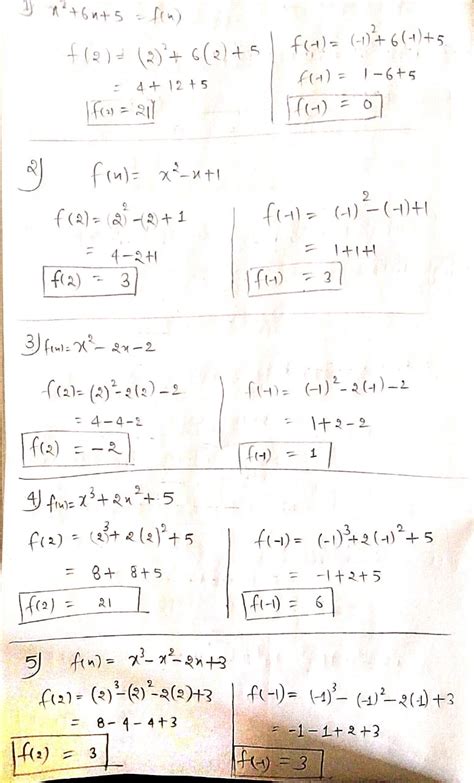 1) x²+6x+5 = f(x)
f(2) = (2)²+6(2)+5
= 4+12+5
f(2) = 21
f(-1) = (-1)²+6(-1)+5
f(-1) = 1-6+5
f(-1) = 0
2) f(x) = x²-x+1
f(2) = (2)²-(2)+1
= 4-2+1
f(2) = 3
f(-1) = (-1)²-(-1)+1
= 1+1+1
f(-1) = 3
3) f(x) = x²-2x-2
f(2) = (2)²-2(2)-2
= 4-4-2
f(2) = -2
f(-1) = (-1)²-2(-1)-2
= 1+2-2
f(-1) = 1
4) f(x) = x³+2x²+5
f(2) = (2)³+2(2)²+5
= 8+8+5
f(2) = 21
f(-1) = (-1)³+2(-1)²+5
= -1+2+5
f(-1) = 6
5) f(x) = x³-x²-2x+3
f(2) = (2)³-(2)²-2(2)+3
= 8-4-4+3
f(2) = 3
f(-1) = (-1)³-(-1)²-2(-1)+3
= -1-1+2+3
f(-1) = 3